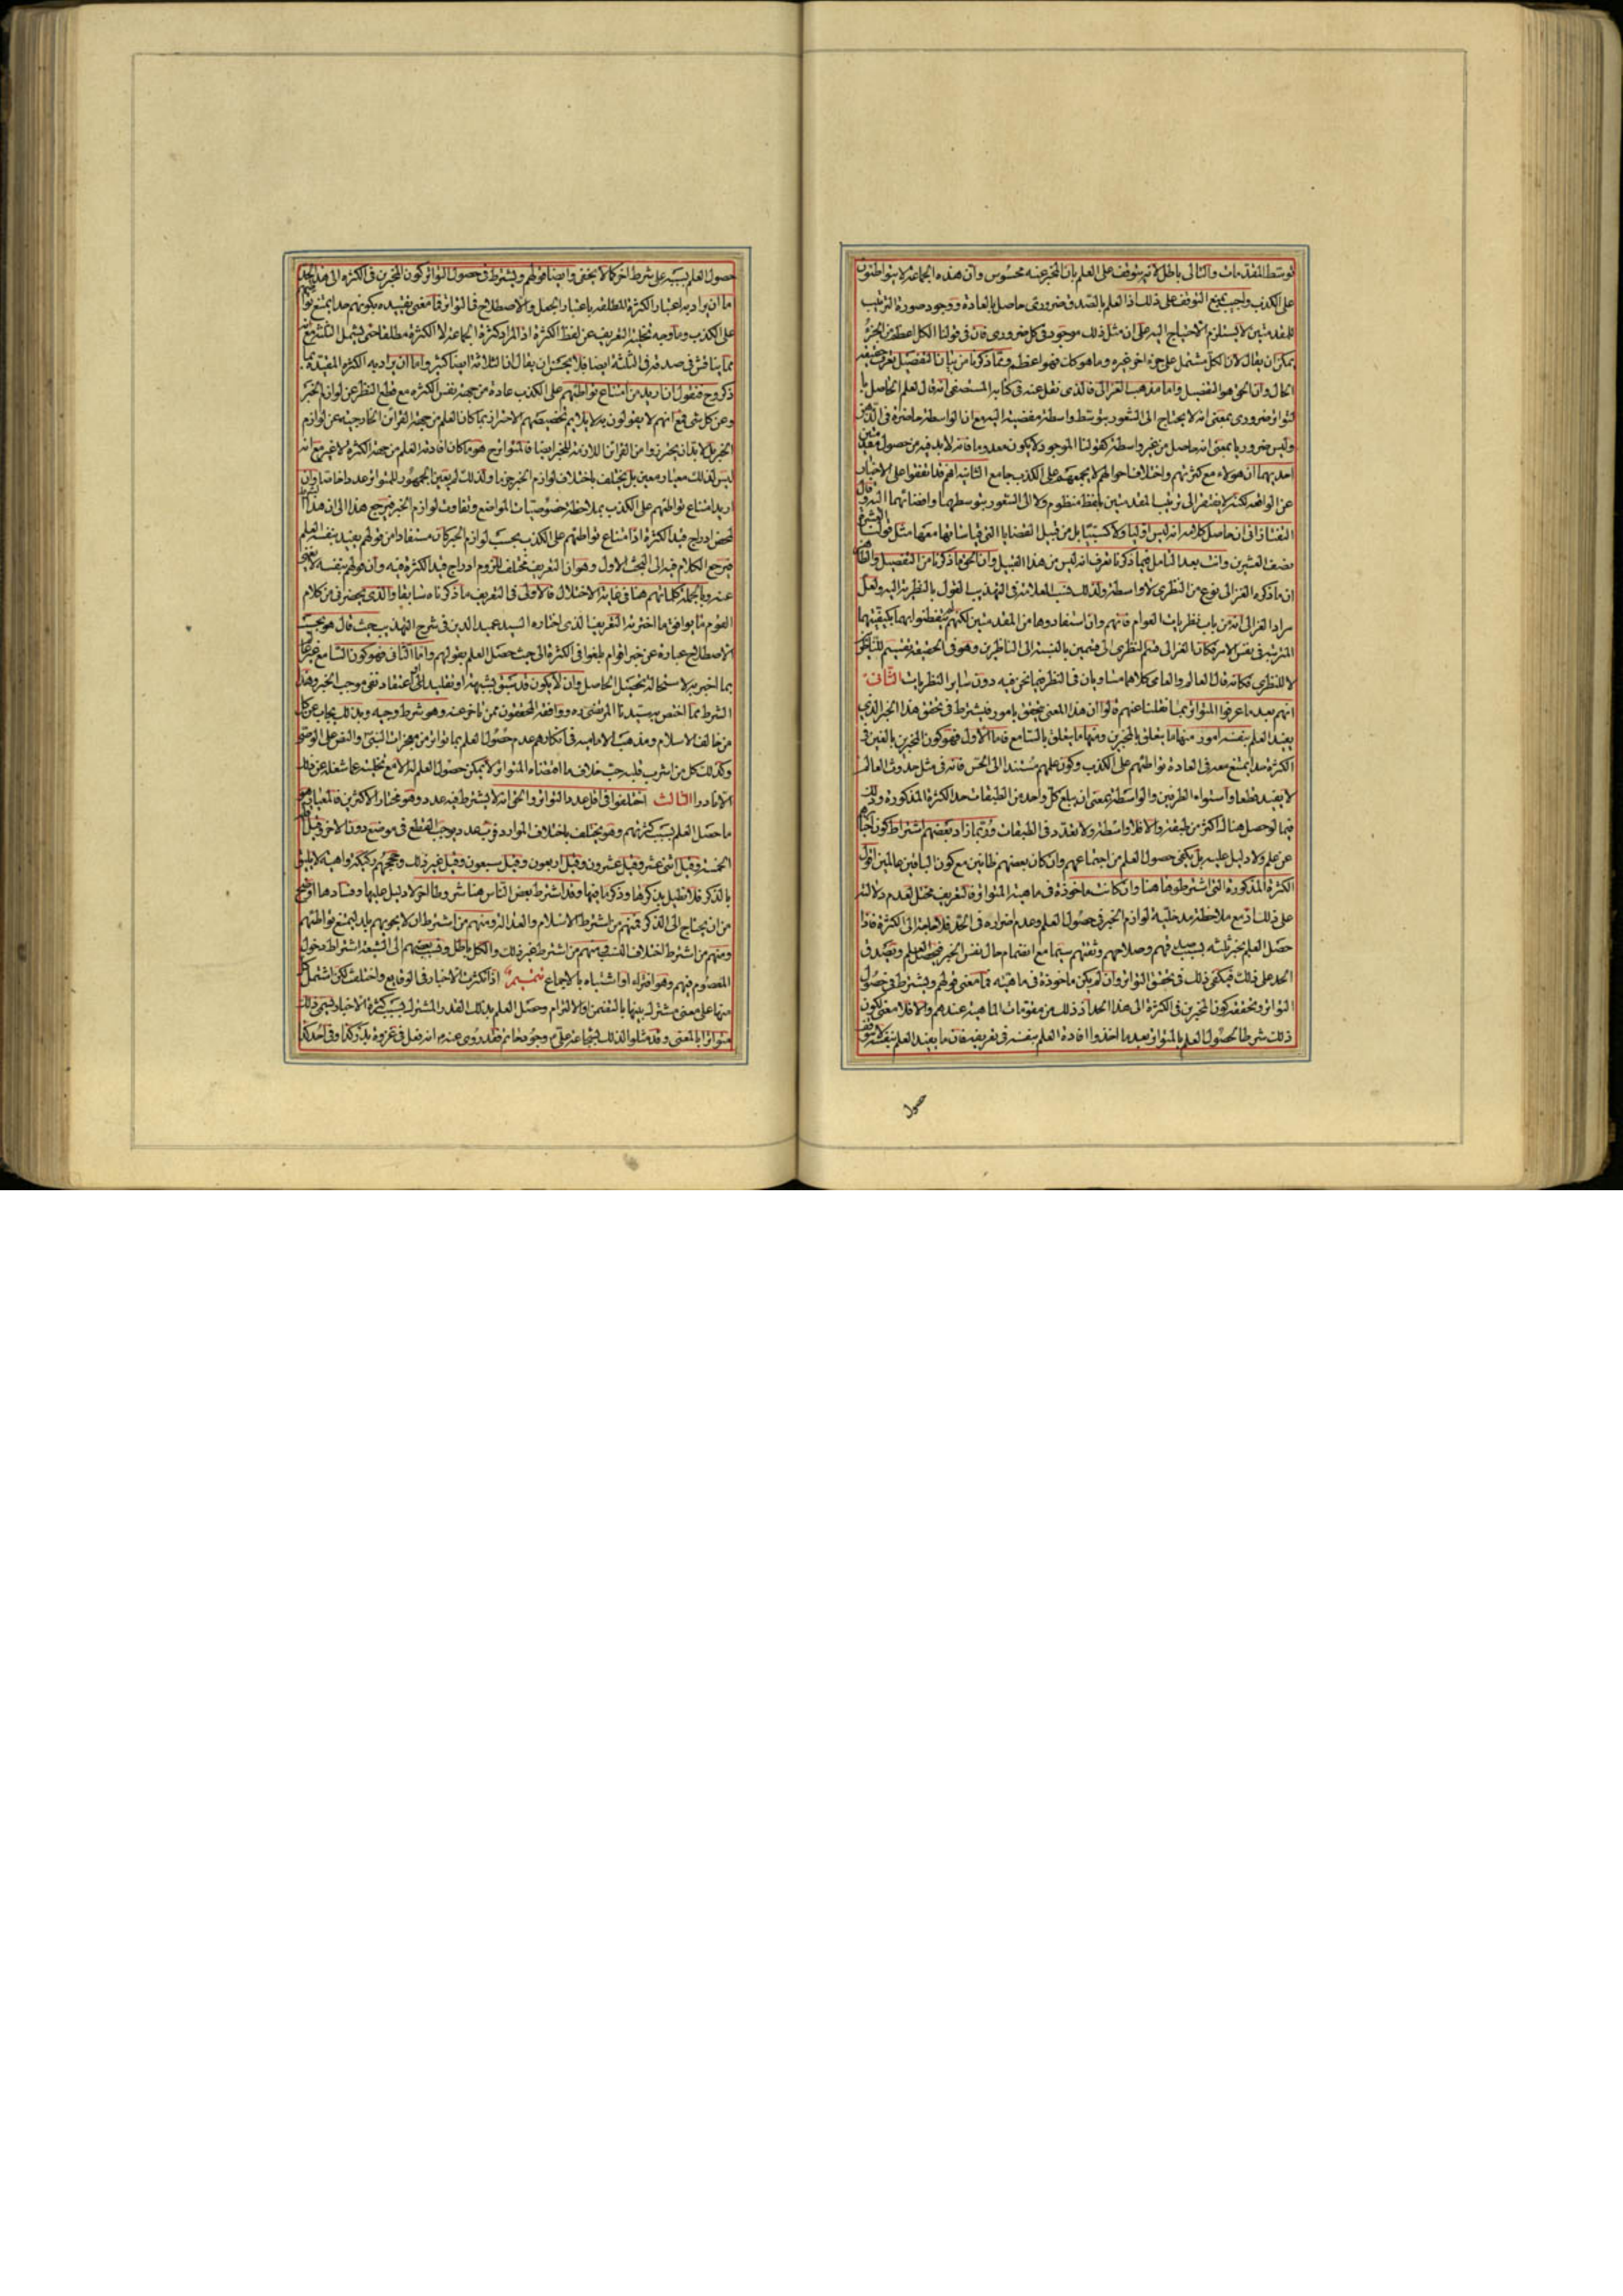 توسط المقدمات والتالى باطل لانه يتوقف على العلم بان المخبر عنه محسوس وان هذه الجماعة لا يتواطئون
على الكذب واجيب بمنع التوقف على ذلك اذ العلم بالصدق ضرورى حاصل بالعادة ووجود صورة الترتيب
للمقدمتين لا يستلزم الاحتياج اليه على ان مثل ذلك موجود فى كل ضرورى فان فى قولنا الكل اعظم من الجزء
يمكن ان يقال لان الكل مشتمل على جزء اخر غيره وما هو كك فهو اعظم ومما ذكرنا من بيان التفصيل تعرف حقيقة
الحال وان الحق هو التفصيل واما مذهب الغزالى فالذى نقل عنه فى كتابه المستصفى انه قال العلم الحاصل با
لتواتر ضرورى بمعنى انه لا يحتاج الى الشعور بتوسط واسطة مفضية اليه مع ان الواسطة حاضرة فى الذهن
وليس ضروريا بمعنى انه حاصل من غير واسطة كقولنا الموجود لا يكون معدوما فانه لابد فيه من حصول مقدمتين
احديهما ان هؤلاء مع كثرتهم واختلاف احوالهم لا يجمعهم على الكذب جامع الثانية انهم قد اتفقوا على الاخبار
عن الواقعة لكنه لا يفتقر الى ترتيب المقدمتين بلفظ منظوم ولا الى الشعور بتوسطهما وافضائهما اليه وقال
التفتازانى ان حاصل كلامه انه ليس اوليا ولا كسبيا بل من قبيل القضايا التى قياساتها معها مثل قولنا العشرة
نصف العشرين وانت بعد التامل فيما ذكرنا تعرف انه ليس من هذا القبيل وان الحق ما ذكرنا من التفصيل والظاهر
ان ما ذكره الغزالى نوع من النظرى لا واسطة ولذلك نسب العلامة فى التهذيب القول بالنظرية اليه ولعل
مراد الغزالى انه من باب نظريات العوام فانهم وان استفادوها من المقدمتين لكنهم لم يتفطنوا بهما بكيفيتهما
المترتبة فى نفس الامر فكان الغزالى قسم النظرى الى قسمين بالنسبة الى الناظرين وهو فى الحقيقة تقسيم للناظر
لا للنظرى فكانه قال العالم والعامى كلاهما متساويان فى النظر فيما نحن فيه دون ساير النظريات الثانى
انهم بعد ما عرفوا المتواتر بما نقلنا عنهم قالوا ان هذا المعنى يتحقق بامور فيشترط فى تحقق هذا الخبر الذى
يفيد العلم بنفسه امور منها ما يتعلق بالمخبرين ومنها ما يتعلق بالسامع فاما الاول فهو كون المخبرين بالغين فى
الكثرة حدا يمتنع معه فى العادة تواطئهم على الكذب وكون علمهم مستندا الى الحس فانه فى مثل حدوث العالم
لا يفيد قطعا واستواء الطرفين والواسطة بمعنى ان يبلغ كل واحد من الطبقات حد الكثرة المذكورة وذلك
فيما لو حصل هناك اكثر من طبقة والا فلا واسطة ولا تعدد فى الطبقات وربما زاد بعضهم اشتراط كون اخبارهم
عن علم ولا دليل عليه بل يكفى حصول العلم من اجتماعهم وان كان بعضهم ظانين مع كون الباقين عالمين اقول
الكثرة المذكورة التى اشترطوها هنا وان كانت ماخوذة فى ماهية المتواتر فالتعريف مختل لعدم دلالته
على ذلك اذ مع ملاحظة مدخلية لوازم الخبر فى حصول العلم وعدم اضراره فى الحد فلا حاجة الى الكثرة فاذا
حصل العلم بخبر ثلثة بسبب فهمهم وصلاحهم وثقتهم سيما مع انضمام حال نفس الخبر فيحصل العلم ويصدق
الحد على ذلك فيكفى ذلك فى تحقق التواتر وان لم يكن ماخوذة فى ماهيته فما معنى قولهم ويشترط فى حصول
التواتر وتحققه كون المخبرين فى الكثرة الى هذا الحد اذ ذلك من مقومات الماهية عندهم والا فلا معنى لكون
ذلك شرطا لحصول العلم بالمتواتر بعد ما اخذوا افادة العلم بنفسه فى تعريفه فان ما يفيد العلم بنفسه لا يتوقف
حصول
حصول العلم بسببه على شرط اخر كما لا يخفى وايضا قولهم ويشترط فى حصول التواتر كون المخبرين فى الكثرة الى هذا الحد
اما ان يراد به اعتبار الكثرة المطلقة باعتبار الجعل والاصطلاح فى التواتر فما معنى تقييده بكونهم حدا يمتنع تواطئهم
على الكذب وما وجه تخلية التعريف عن لفظ الكثرة اذ المراد كثرة الجماعة لا الكثرة مطلقا حتى يشمل الثلثة مع انه
مما يناقش فى صدقه فى الثلثة ايضا فلا يحسن ان يقال ان الثلاثة ايضا كثير واما ان يراد به الكثرة المقيدة بما
ذكروح فنقول ان اريد من امتناع تواطئهم على الكذب عادة من جهة نفس الكثرة مع قطع النظر عن لوازم الخبر
وعن كل شى فمع انهم لا يقولون به لا يلايم تخصيصهم الاحتراز بما كان العلم من جهة القرائن الخارجية عن لوازم
الخبر بل لابد ان يحترزوا من القرائن اللازمة للخبر ايضا فالمتواترح هو ما كان افادته العلم من جهة الكثرة لا غير مع انه
ليس لذلك معيار معين بل يختلف باختلاف لوازم الخبر جزما ولذلك لم يعين الجمهور للمتواتر عددا خاصا وان
اريد امتناع تواطئهم على الكذب بملاحظة خصوصيات المواضع وتفاوت لوازم الخبر فيرجع هذا الى ان هذا الشرط
لمحض ادراج قيد الكثرة اذ امتناع تواطئهم على الكذب بحسب لوازم الخبر كان مستفادا من قولهم يفيد بنفسه العلم
فيرجع الكلام فيه الى البحث الاول وهو ان التعريف مختلف للزوم ادراج قيد الكثرة فيه وان قولهم بنفسه لا يغنى
عنه وبالجملة كلماتهم هنا فى غاية الاختلال فالاولى فى التعريف ما ذكرناه سابقا والذى يحضرنى من كلام
القوم مما يوافق ما اخترته التعريف الذى اختاره السيد عميد الدين فى شرح التهذيب حيث قال هو بحسب
الاصطلاح عبارة عن خبر اقوام بلغوا فى الكثرة الى حيث حصل العلم بقولهم واما الثانى فهو كون السامع غير عالم
بما اخبر به لاستحالة تحصيل الحاصل وان لا يكون قد سبق بشبهة او تقليد الى اعتقاد نفى موجب الخبر وهذا
الشرط مما اختص به سيدنا المرتضى ره ووافقه المحققون ممن تاخر عنه وهو شرط وجيه وبذلك يجاب عن كل
من خالف الاسلام ومذهب الامامية فى انكارهم عدم حصول العلم بما تواتر من معجزات النبى والنص على الوصى
وكذلك كل من اشرب قلبه حب خلاف ما اقتضاه المتواتر لا يمكن حصول العلم له الا مع تخليته عما شغله عن ذلك
الا نادرا الثالث اختلفوا فى اقل عدد التواتر والحق انه لا يشترط فيه عدد وهو مختار الاكثرين فالمعيار هو
ما حصل العلم بسبب كثرتهم وهو يختلف باختلاف الموارد فرب عدد يوجب القطع فى موضع دون الاخر وقيل اقله
الخمسة وقيل اثنى عشر وقيل عشرون وقيل اربعون وقيل سبعون وقيل غير ذلك وحججهم ركيكة واهية لا يليق
بالذكر فلا نطيل بذكرها وذكر ما فيها وقد اشترط بعض الناس هنا شروطا اخر لا دليل عليها وفسادها اوضح
من ان يحتاج الى الذكر فمنهم من اشترط الاسلام والعدالة ومنهم من اشترط ان لا يحويهم بلد ليمتنع تواطئهم
ومنهم من اشترط اختلاف النسب ومنهم من اشترط غير ذلك والكل باطل ونسب بعضهم الى الشيعة اشتراط دخول
المعصوم فيهم وهو افتراء او اشتباه بالاجماع تتميم اذا تكثرت الاخبار فى الوقايع واختلف لكن اشتمل كل
منها على معنى مشترك بينها بالتضمن او الالتزام وحصل العلم بذلك القدر المشترك بسبب كثرة الاخبار يسمى ذلك
متواترا بالمعنى وقد مثلوا لذلك بشجاعة على ع وجود حاتم فقد روى عنه ع انه فعل فى غزوة بدر كذا وفى احد كذا